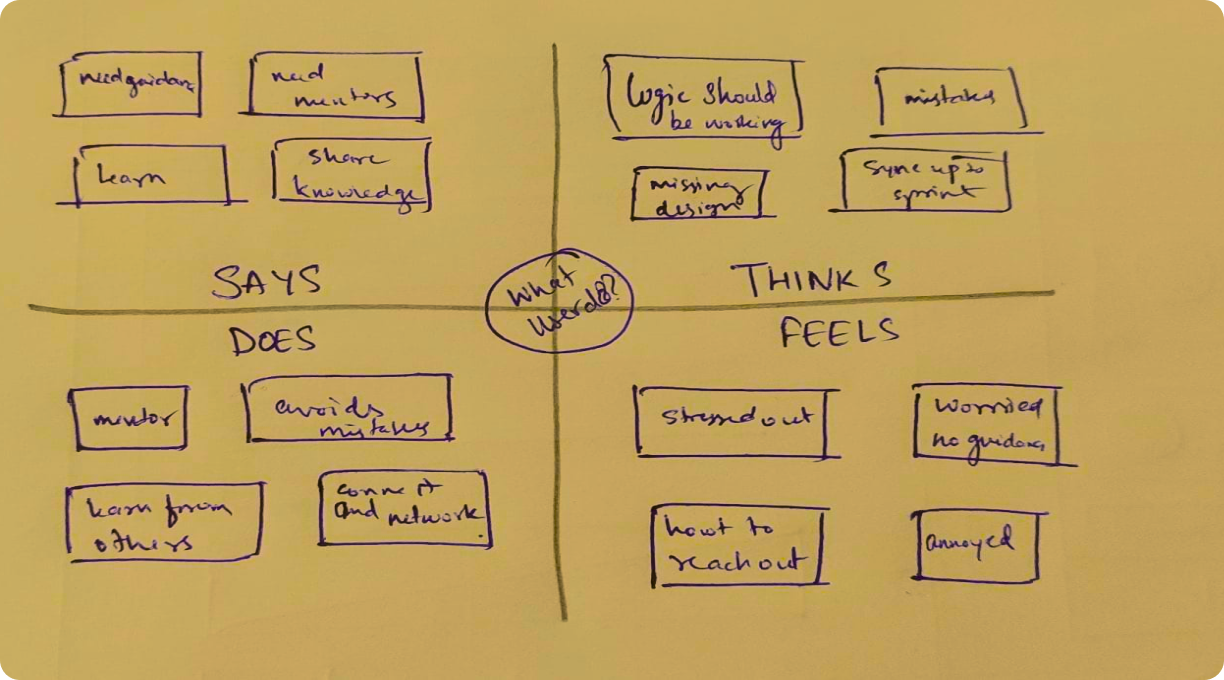 need guidance
need
mentors
learn
share
knowledge
SAYS
logic should
be working
mistakes
missing
design
sync up to
sprint
THINKS
What
user do?
DOES
mentor
avoids
mistakes
learn from
others
connect
and network
FEELS
stressed out
worried
no guidance
howt to
reach out
annoyed